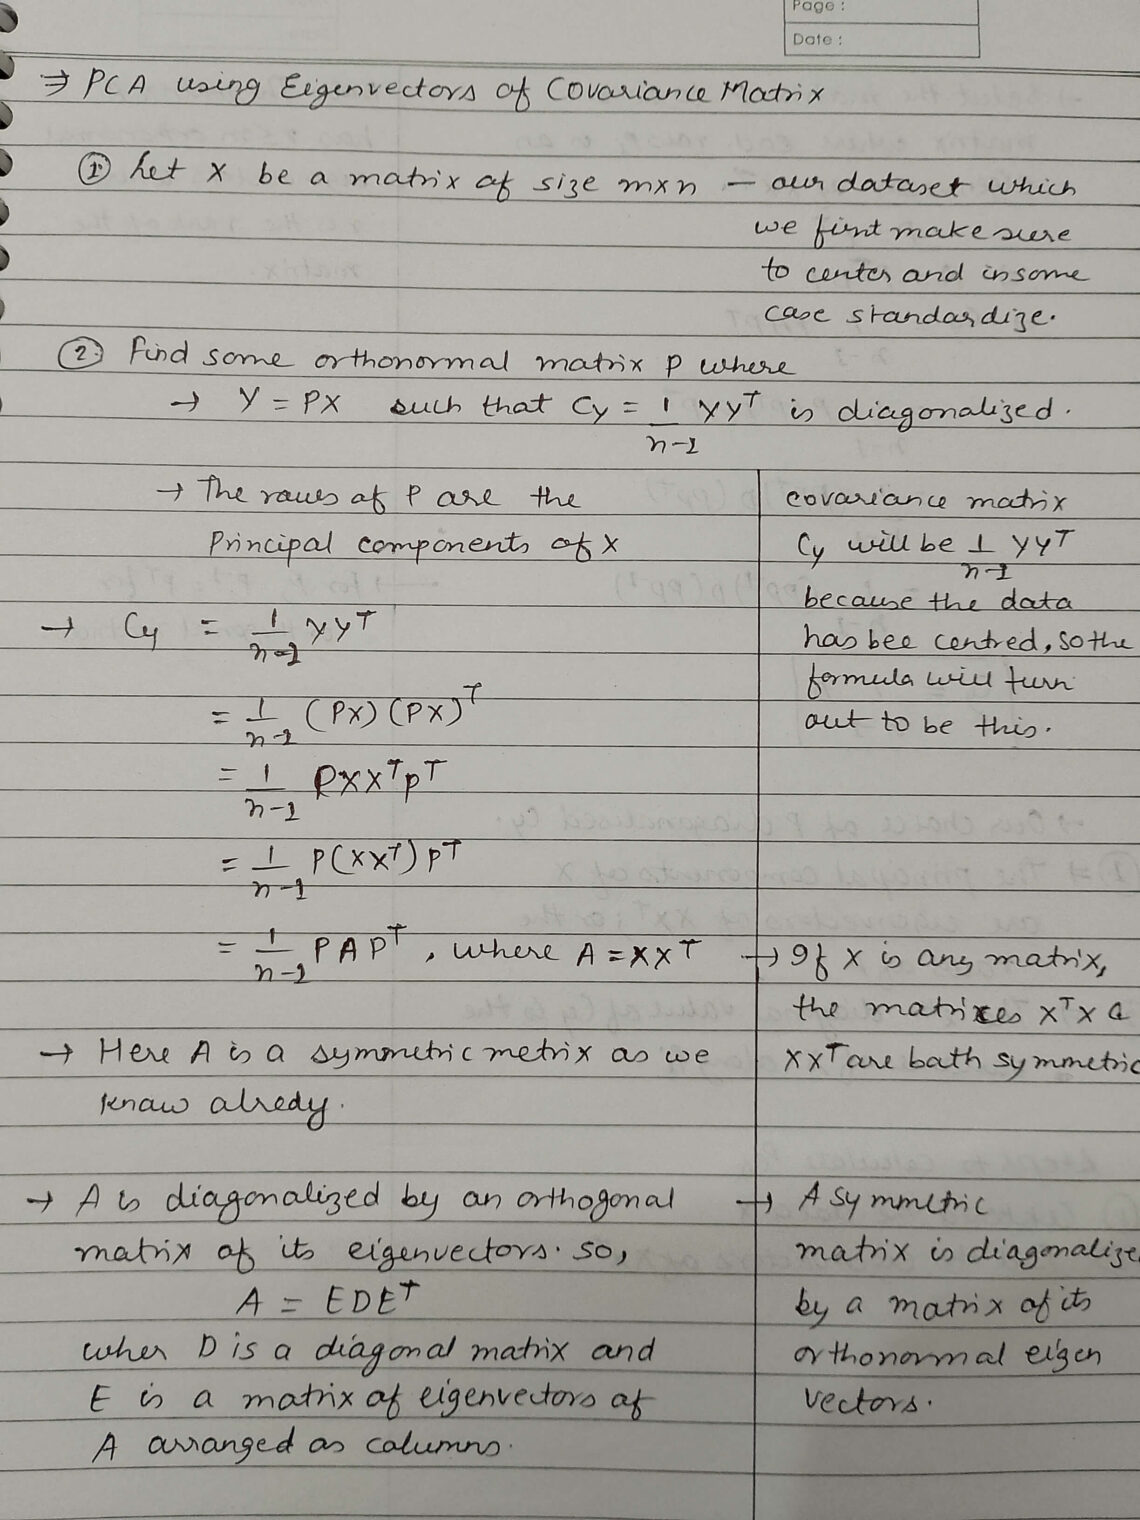 Page :
Date :
⇒ PCA using Eigenvectors of Covariance Matrix
① Let X be a matrix of size m×n — our dataset which
we first make sure
to center and in some
case standardize.
② Find some orthonormal matrix P where
→ Y = PX such that Cy = 1/(n-1) YYᵀ is diagonalized.
→ The rows of P are the
Principal components of X
covariance matrix
Cy will be 1/(n-1) YYᵀ
because the data
has bee centred, so the
formula will turn
out to be this.
→ Cy = 1/(n-1) YYᵀ
= 1/(n-1) (PX)(PX)ᵀ
= 1/(n-1) PXXᵀPᵀ
= 1/(n-1) P(XXᵀ)Pᵀ
= 1/(n-1) PAPᵀ, where A = XXᵀ
→ If X is any matrix,
the matrices XᵀX &
XXᵀ are both symmetric
→ Here A is a symmetric metrix as we
know alredy.
→ A is diagonalized by an orthogonal
matrix of its eigenvectors. so,
A = EDEᵀ
wher D is a diagonal matrix and
E is a matrix of eigenvectors of
A arranged as columns.
→ A symmetric
matrix is diagonalize
by a matrix of its
orthonormal eigen
vectors.